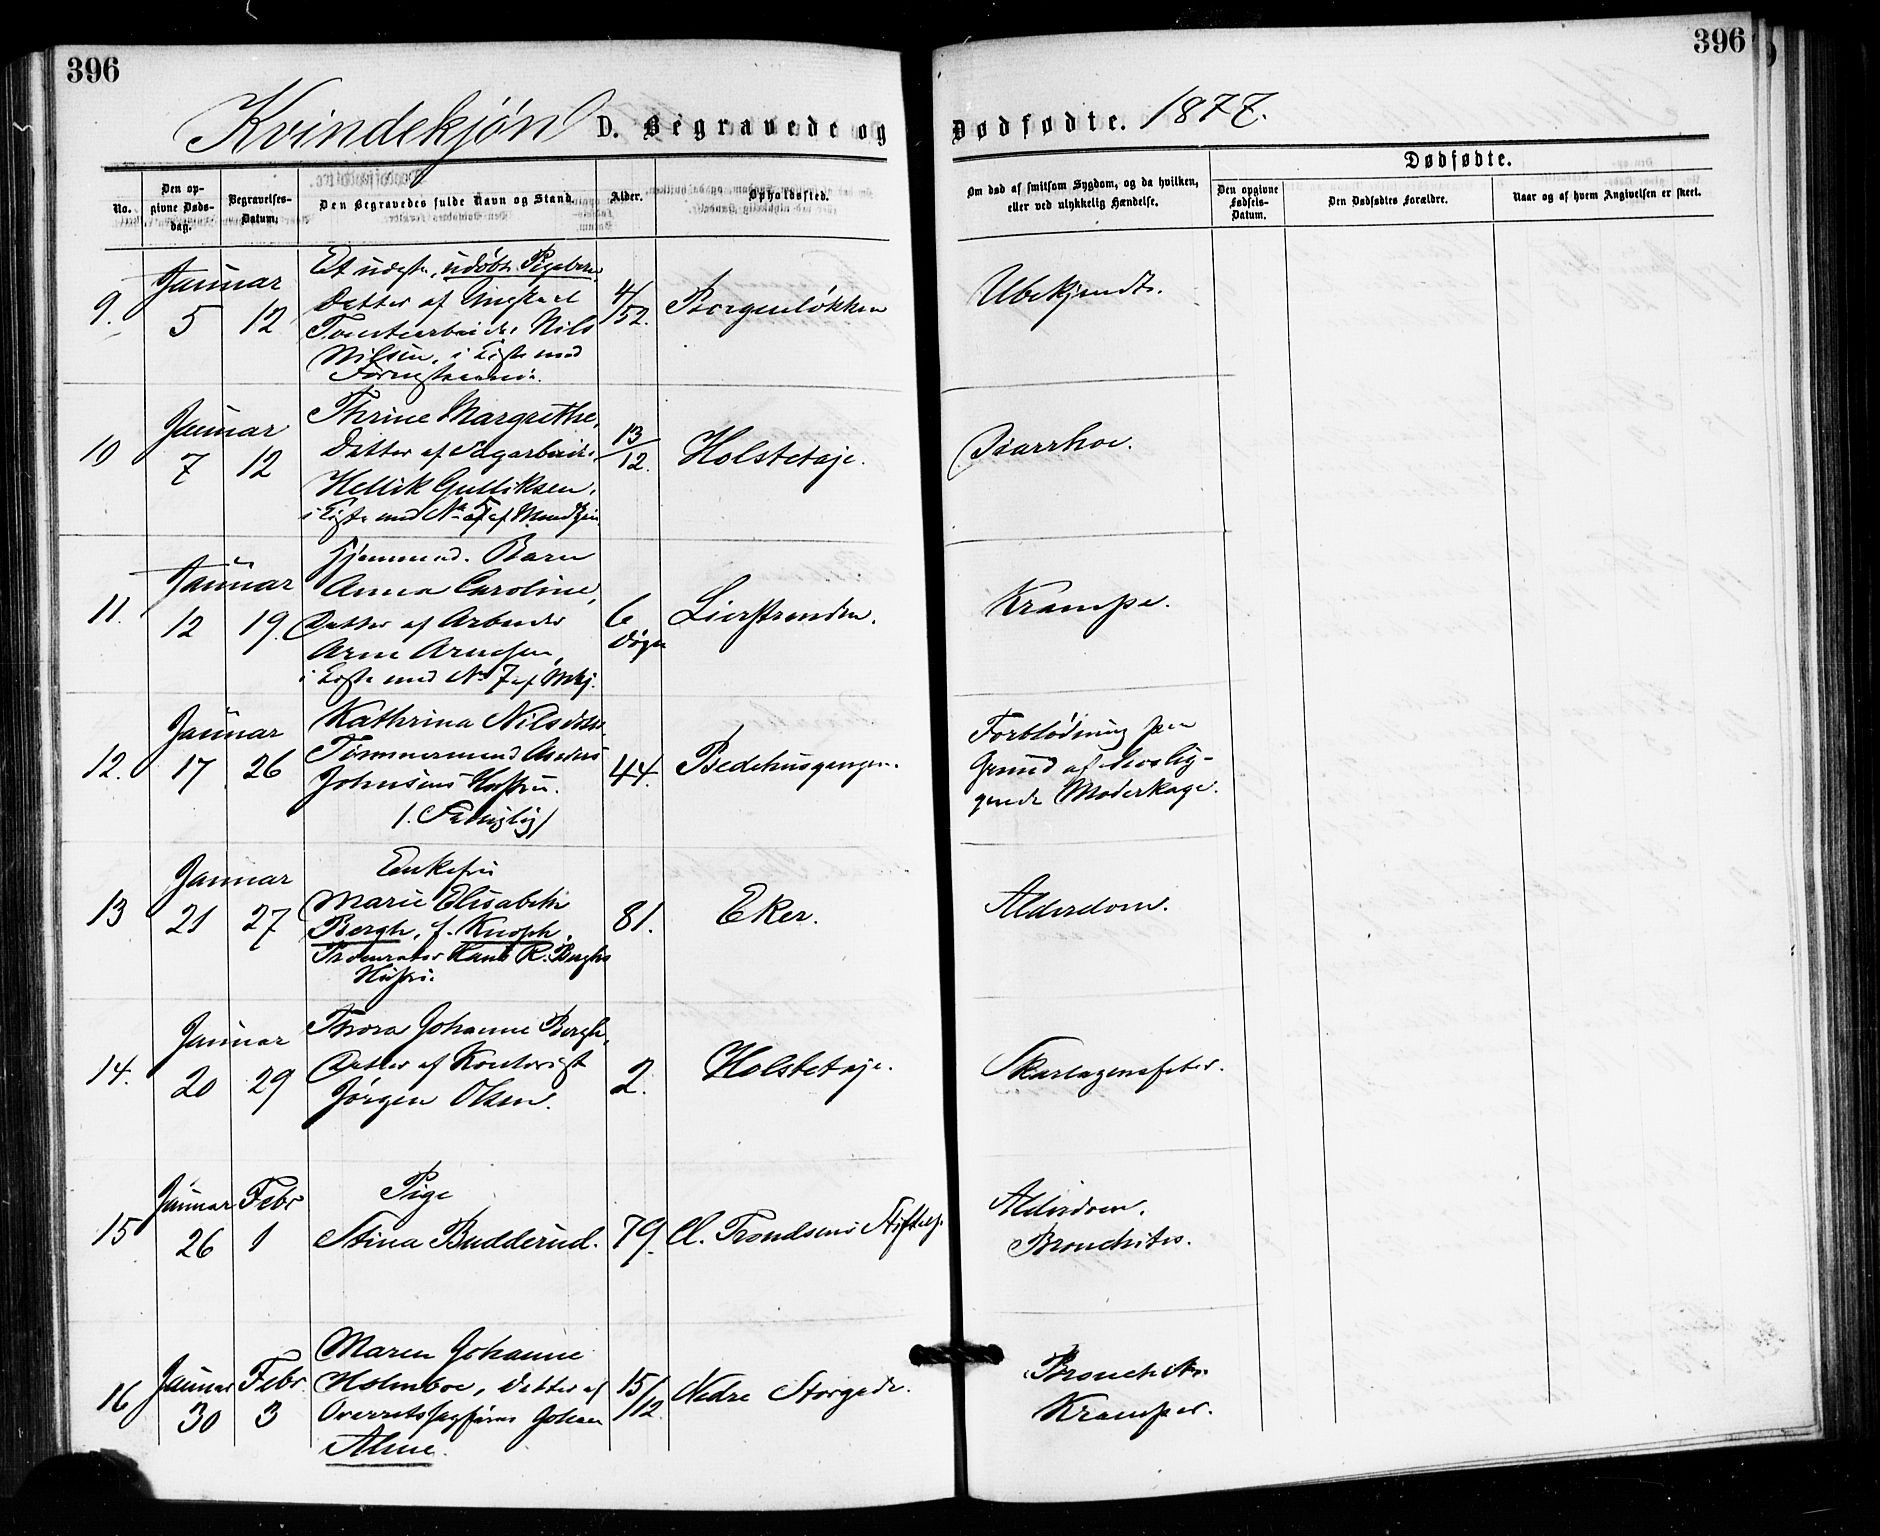 396
396
Kvindekjøn D. Begravede og Dødfødte. 1877.
No.
Den opgivne Dødsdag.
Begravelses-Datum.
Den Begravedes fulde Navn og Stand.
Alder.
Opholdssted.
Om død af smitsom Sygdom, og da hvilken,
eller ved ulykkelig Hændelse.
Dødfødte.
Den opgivne Fødsels-Datum.
Den Dødfødtes Forældre.
Naar og af hvem Angivelsen er skeet.
9.
Januar
5 12
Et udøbt Pigebarn
Datter af
Nils
Nilsen, i Kiste med
4/52.
Borgenløkken
Ubekjendt.
10
Januar
7 12
Thrine Margrethe,
Datter af Sagarbeider
Hellik Gulliksen.
i Kiste med No 5 af Mandkjøn
13/12.
Holstetøje.
Diarrhoe.
11.
Januar
12 19.
Hjemmed. Barn
Anna Caroline,
Datter af Arbeider
Arne Arnesen,
i Kiste med No 7 af Mkj.
6 Døgn
Lierstranden.
Krampe.
12.
Januar
17 26
Kathrina Nilsdatter
Tømmermand Anders
Johnsens Hustru.
44.
Bedehusgangen.
Forblødning paa
Grund af
gende Moderkage.
13
Januar
21 27
Enkefru
Marie Elisabeth
Bergh, f. Knoph,
Procurator Hans R. Berghs
Hustru.
81.
Eker.
Alderdom.
14.
Januar
20 29
Thora Johanne Bergh,
Datter af Kontorist
Jørgen Olsen.
2.
Holstetøje.
Skarlagensfeber.
15
Januar Febr
26 1
Pige
Stina Budderud.
79.
Cl. Trondsens Stiftelse.
Alderdom.
Bronchitis.
16
Januar Febr.
30 3
Maren Johanne
Holmboe, Datter af
Overretssagfører Johan
Alme.
15/12.
Nedre Storgade.
Bronchitis.
Kramper.